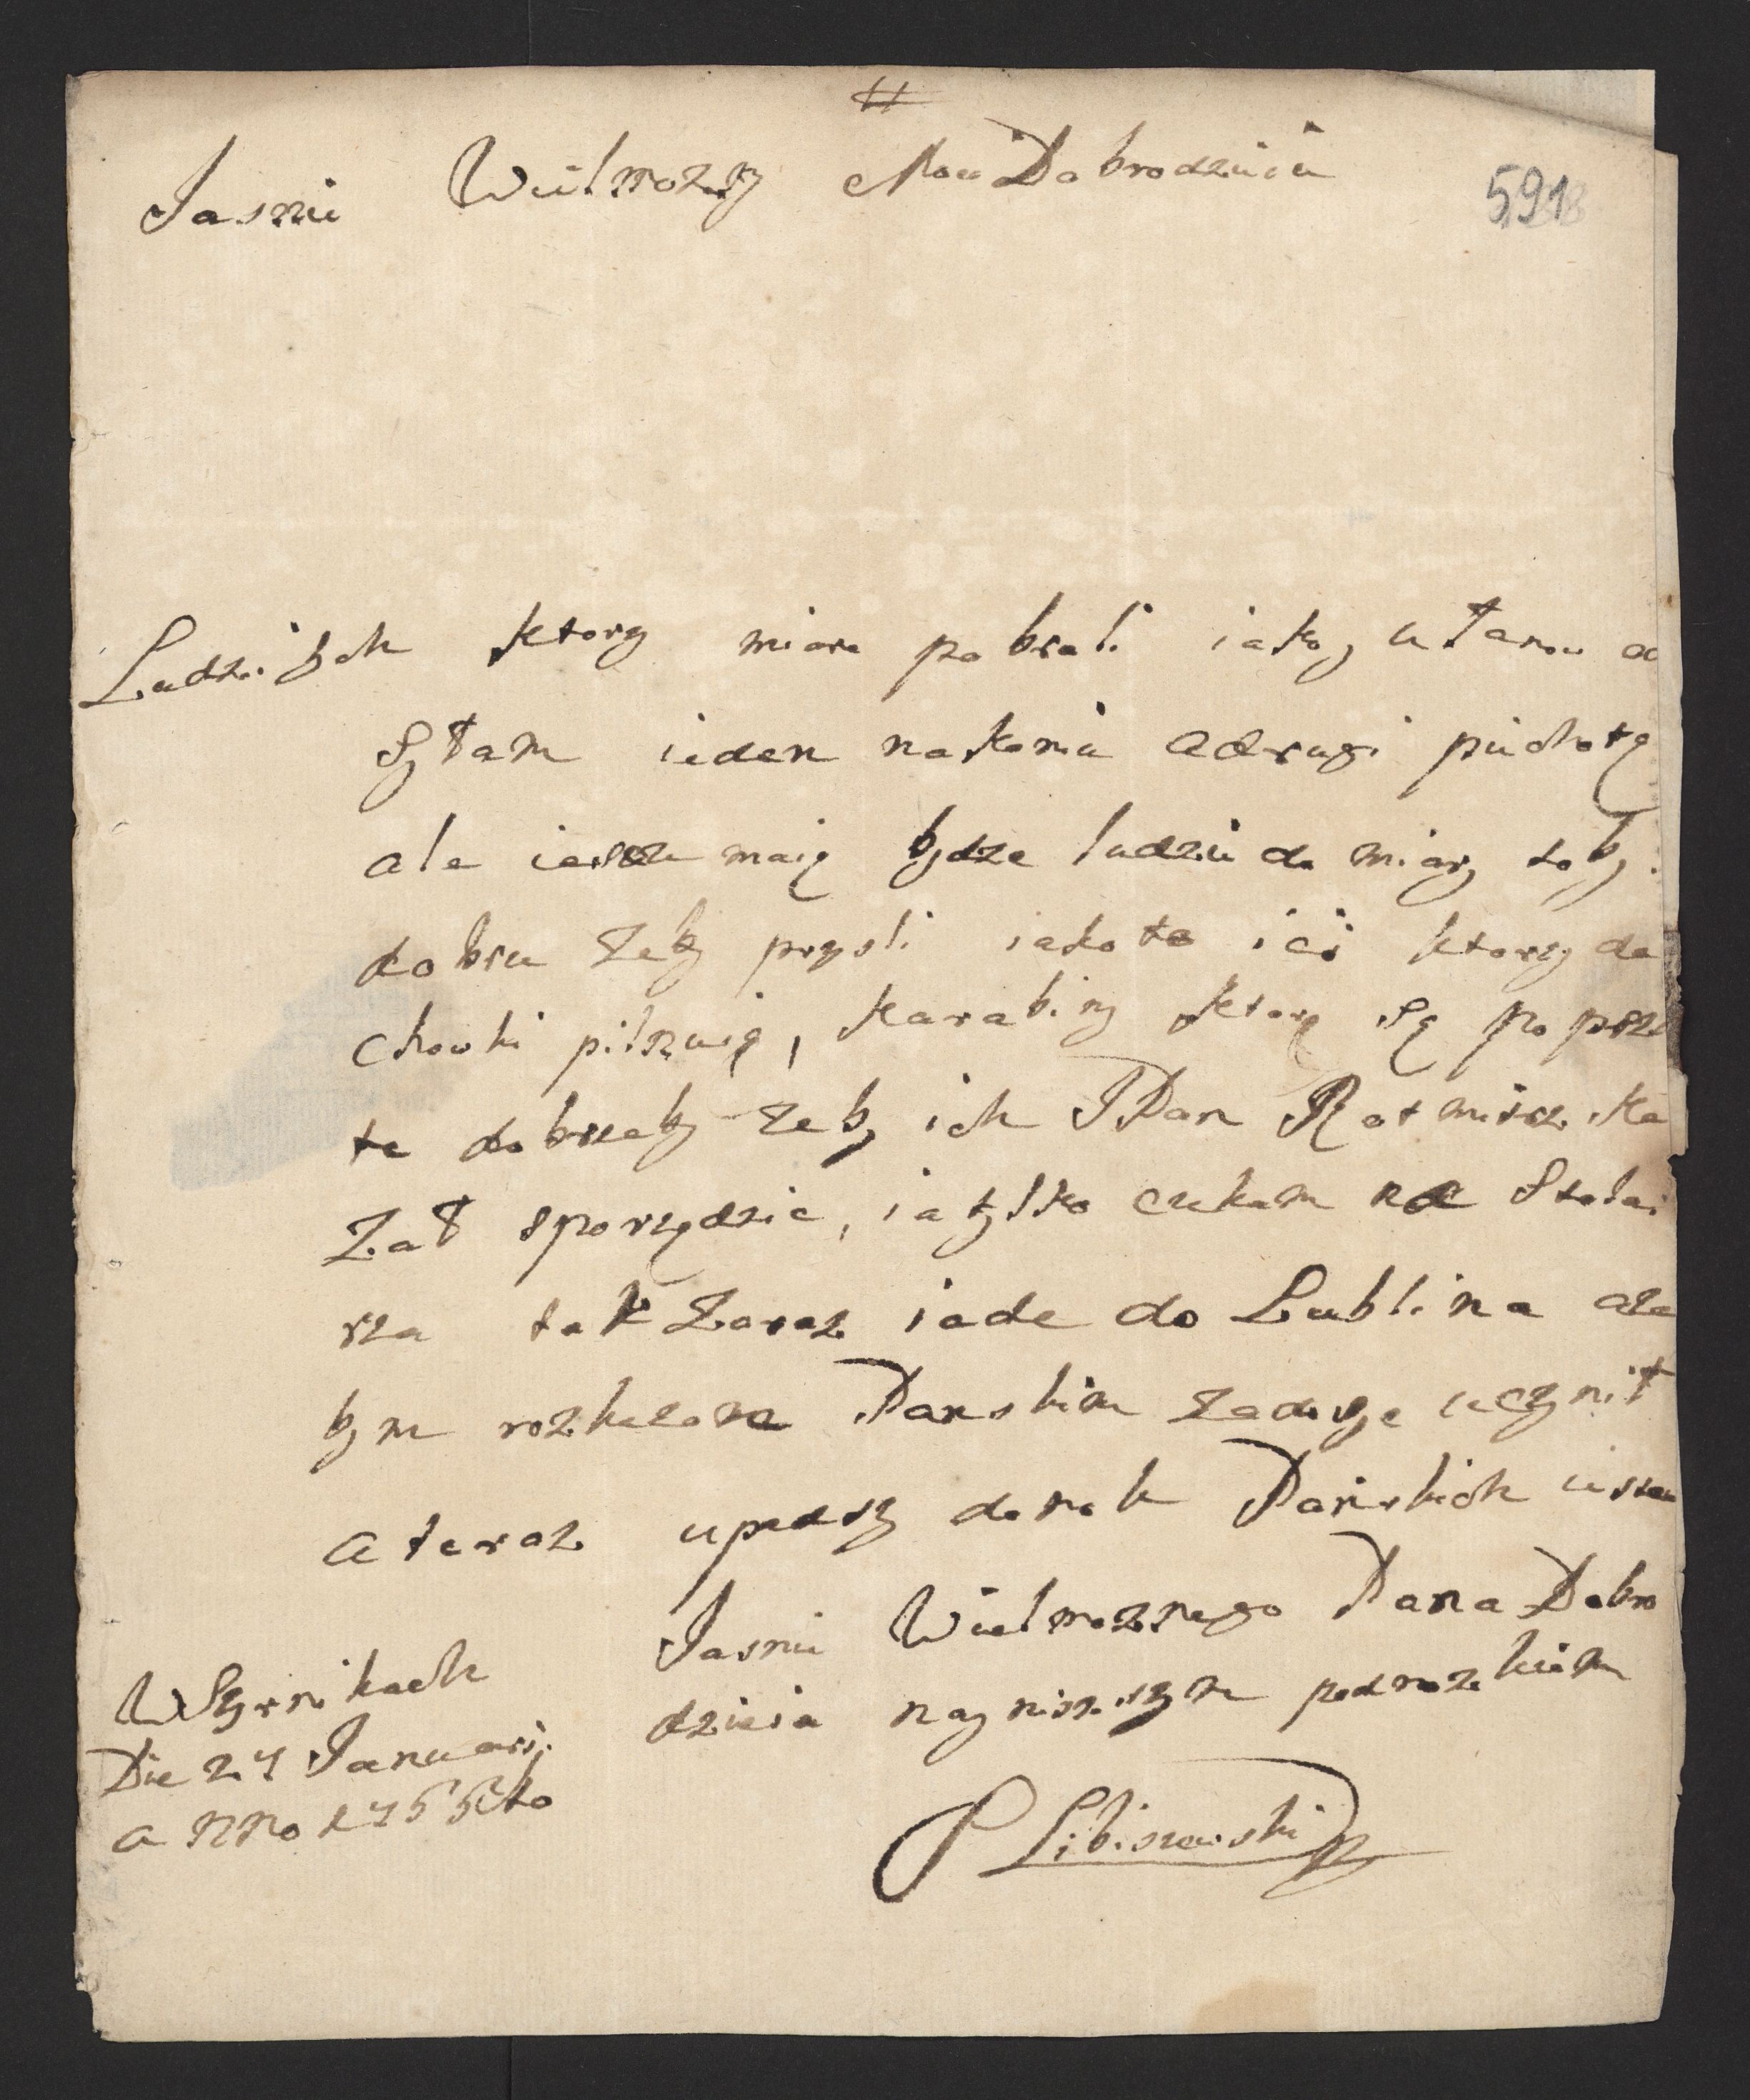 #
Jasnie Wielmozny Mosci Dobrodzieiu
591
Ludzi tych ktorzy miare pobrali iako y ułanow od
Syłam ieden nakoniu adrugi piechotą
ale ieszcze maią bydze ludzie do miary toby
dobrze zeby przysli iako te iei ktorzy do
chowki pilnuią, Karabiny ktore są po psu
te dobrzeby zeby ich J Pan Rotmisrz Ka
zał sporządzic, ia tylko czekam na Stola
rza tak Zaraz iade do Lublina aze
bym rozkazom Panskim zadosyc uczynił
a teraz upadszy do nok Pańskich iestem
Jasnie Wielmoznego Pana Dobro
dzieia nayniszszym podnozkiem
P Libiszewski
W Syrnikach
Die 27 Januarij
anno 1755to